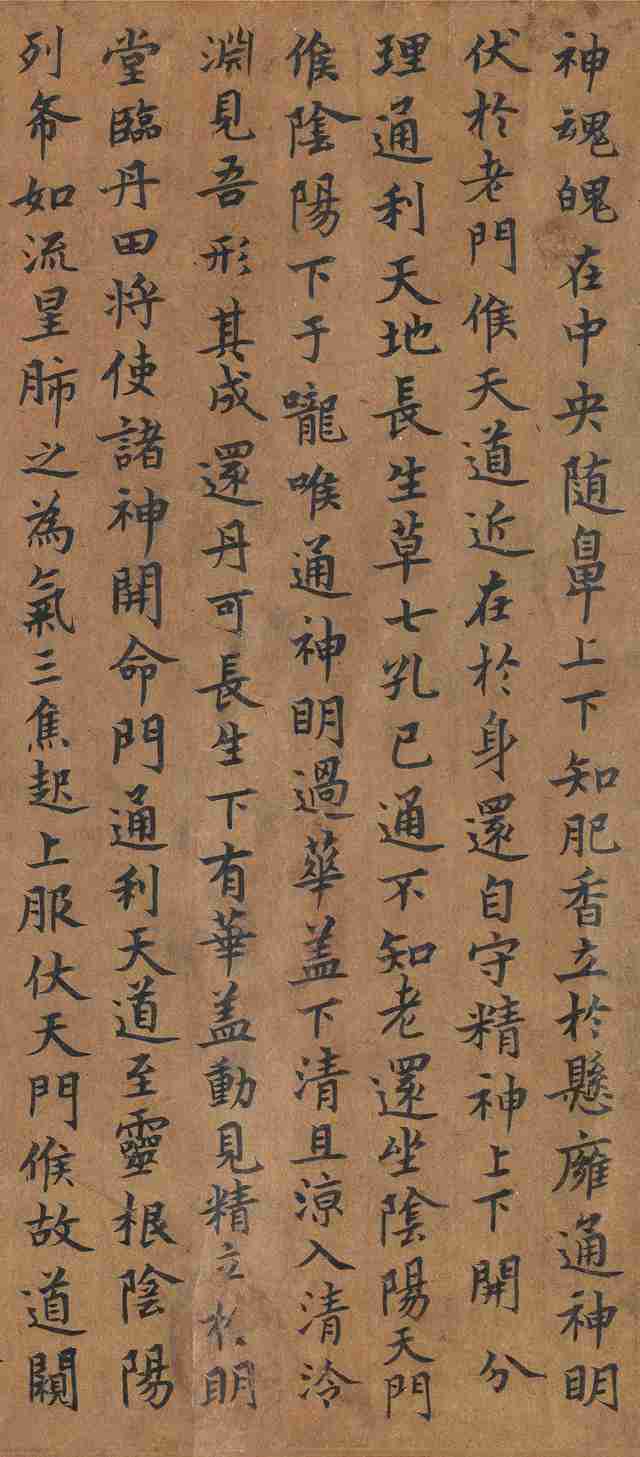 神魂魄在中央随鼻上下知肥香立於懸廱通神明
伏於老門候天道近在於身還自守精神上下開分
理通利天地長生草七孔已通不知老還坐陰陽天門
候陰陽下于嚨喉通神明過華盖下清且涼入清泠
淵見吾形其成還丹可長生下有華盖動見精立於明
堂臨丹田将使諸神開命門通利天道至靈根陰陽
列布如流星肺之為氣三焦起上服伏天門候故道闚